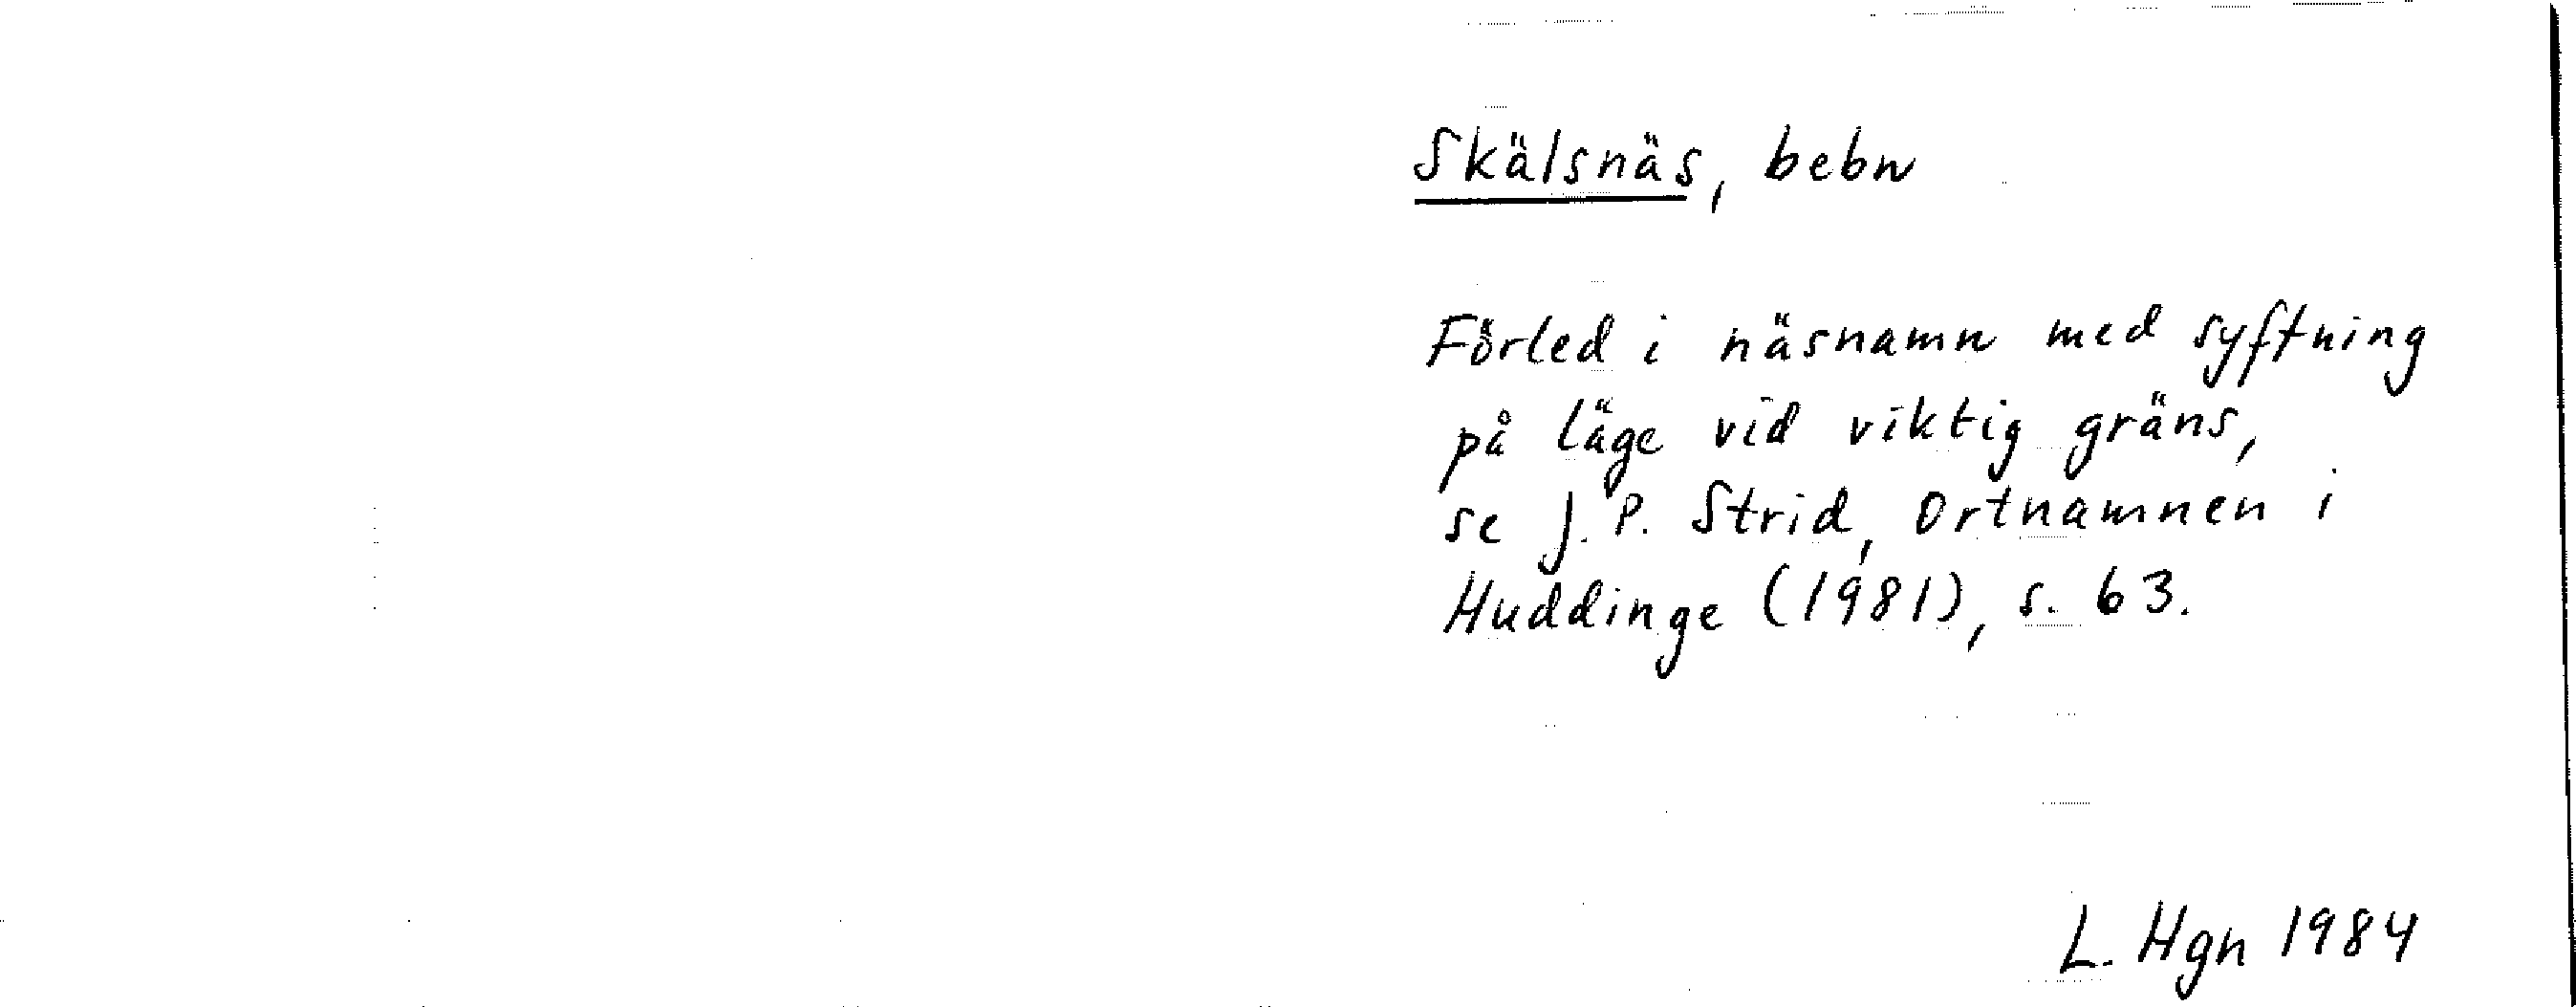 Skälsnäs, bebn
Förled i näsnamn med syftning
på läge vid viktig gräns,
se J. P. Strid, Ortnamnen i
Huddinge (1981), s. 63.
L. Hgn 1984